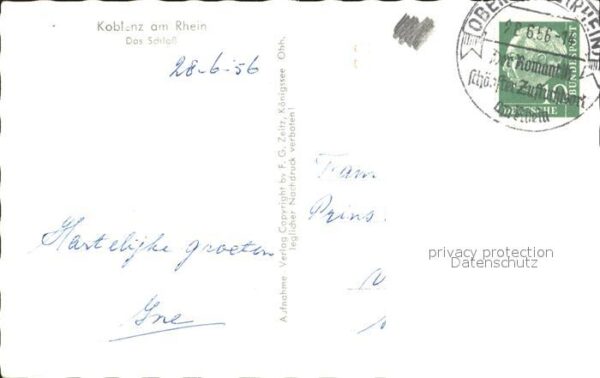 Koblenz am Rhein
Das Schloß
28-6-56
Hartelijke groeten
Ine
Aufnahme Verlag Copyright by F. G. Zeitz, Königssee Obb.
Jeglicher Nachdruck verboten!
Fam
Prins
privacy protection
Datenschutz
6.56
der Romantik
schönster Zufluchtsort
am Rhein
10
DEUTSCHE
BUNDESPOST